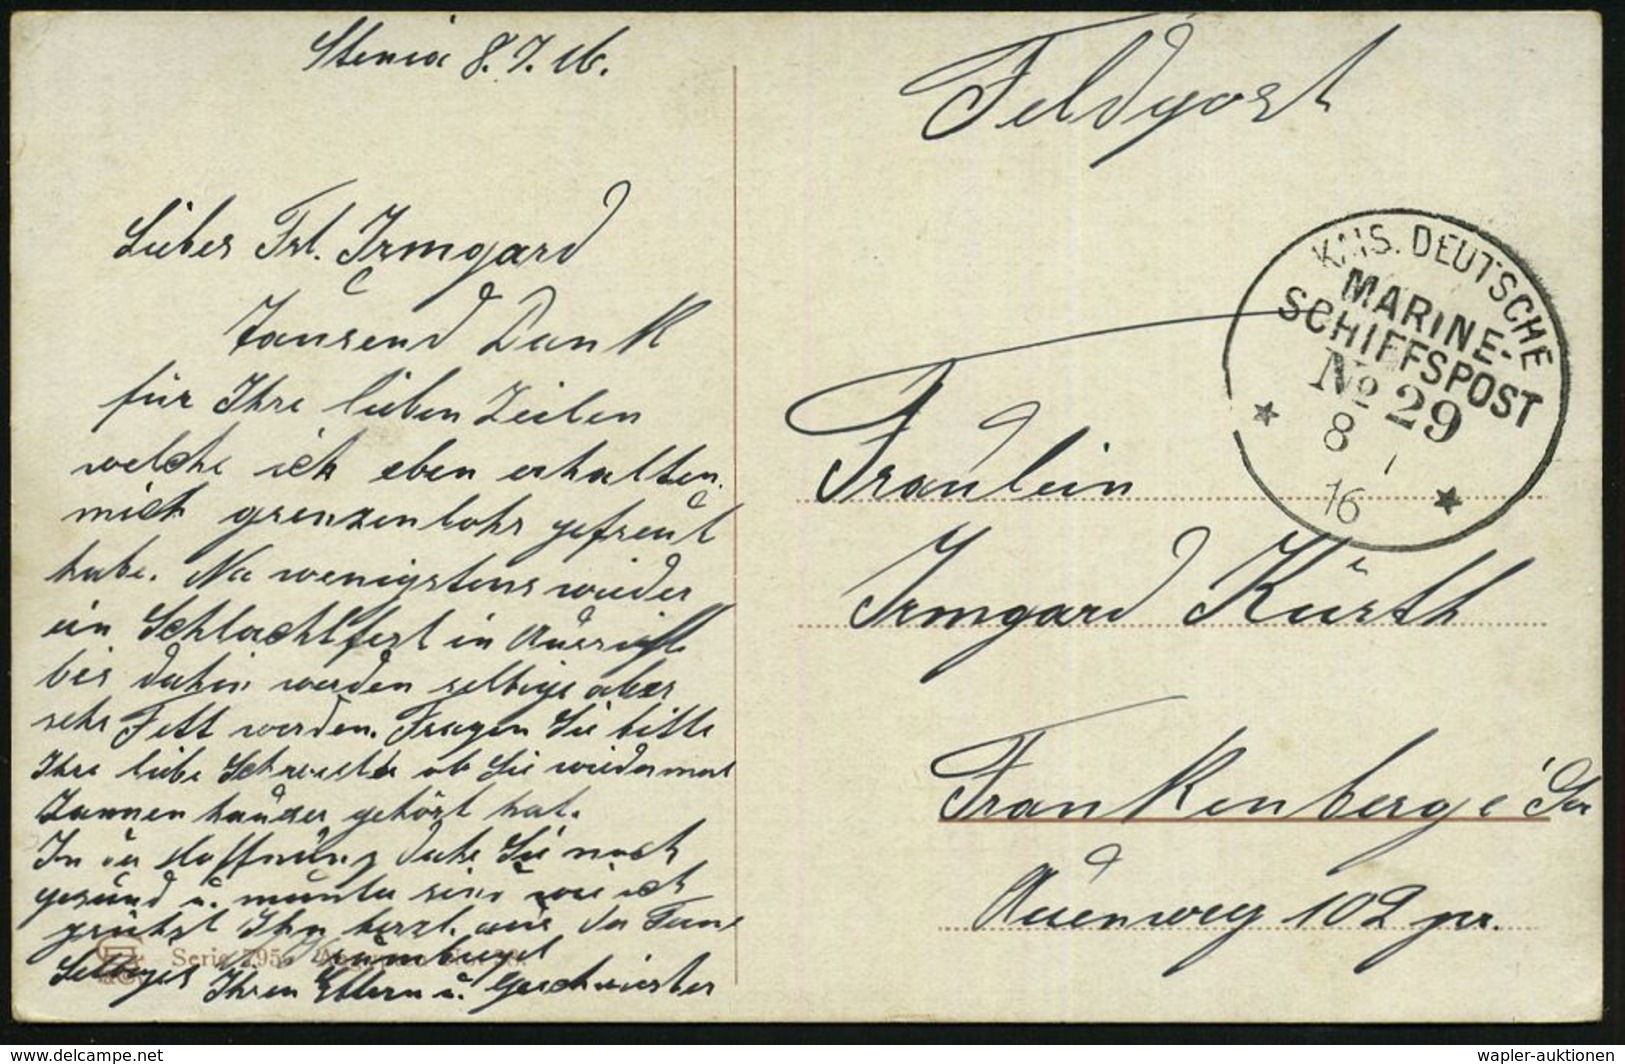 Stenia 8.7.16.
Liebes Frl. Irmgard
Tausend Dank
für Ihre lieben Zeilen
welche ich eben erhalten.
mich grenzenlohs gefreut
habe. Na wenigstens wieder
ein Schlachtfest in
bis dahin werden selbige aber
sehr Fett werden. Fragen Sie bitte
Ihre liebe Schwester ob Sie wiedermal
Tannenhäuser gehört hat.
In der Hoffnung dahs Sie noch
gesund u. munter sind wie ich
grühst Ihn herzl. aus der Ferne
Serie 795
Ihren Eltern u. Geschwister
Feldpost
KAIS. DEUTSCHE
MARINE-
SCHIFFSPOST
No 29
8
16
Fräulein
Irmgard Kürth
Frankenberg i Sa
Auenweg 102 pr.
www.delcampe.net
wapler-auktionen